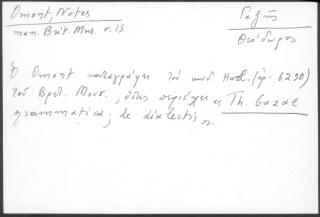 Omont, Notes
man. Brit. Mus. σ. 13
Γαζῆς
Θεόδωρος
Ὁ Omont καταγράφει τὸν κώδ. Harl. (ἀρ. 6290)
τοῦ Βρετ. Μουσ., ὅστις περιέχει « Th. Gazae
grammatica; de dialectis ».